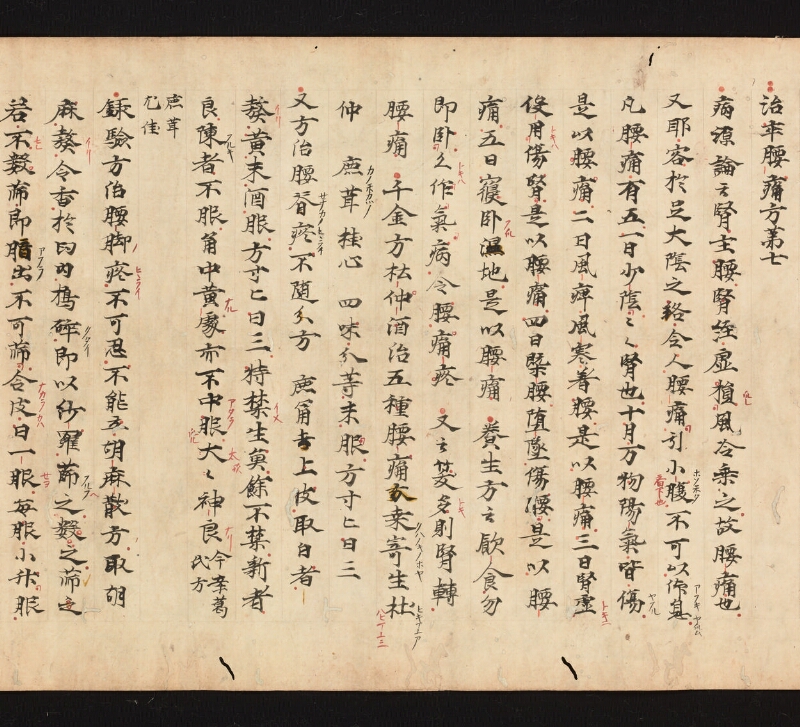 治卒腰痛方第七
病源論云腎主腰腎経虚損風冷乗之故腰痛也
又耶客於足大陰之絡令人腰痛引小腹不可以仰息
凡腰痛有五一曰少陰々々腎也十月万物陽氣皆傷
是以腰痛二曰風痺風寒着腰是以腰痛三曰腎虚
役用傷腎是以腰痛四曰𣊻腰堕墜傷腰是以腰
痛五曰寝卧濕地是以腰痛 養生方云飲食勿
即卧久作氣病令腰痛疼 又云菱多則腎轉
腰痛 千金方杜仲酒治五種腰痛 桒寄生杜
仲 鹿茸 桂心 四味分等末服方寸匕日三
又方治腰脊疼不随方 鹿角去上皮取白者
熬黄末酒服方寸匕日三特禁生魚餘不禁新者
良陳者不服角中黄處亦不中服大々神良 今案葛氏方
鹿茸尤佳
録驗方治腰脚疼不可忍不能立胡麻散方 取胡
麻熬令香於臼内擣碎即以紗羅篩之熬之篩之
若不熬篩即脂出不可篩合皮日一服每服小升服